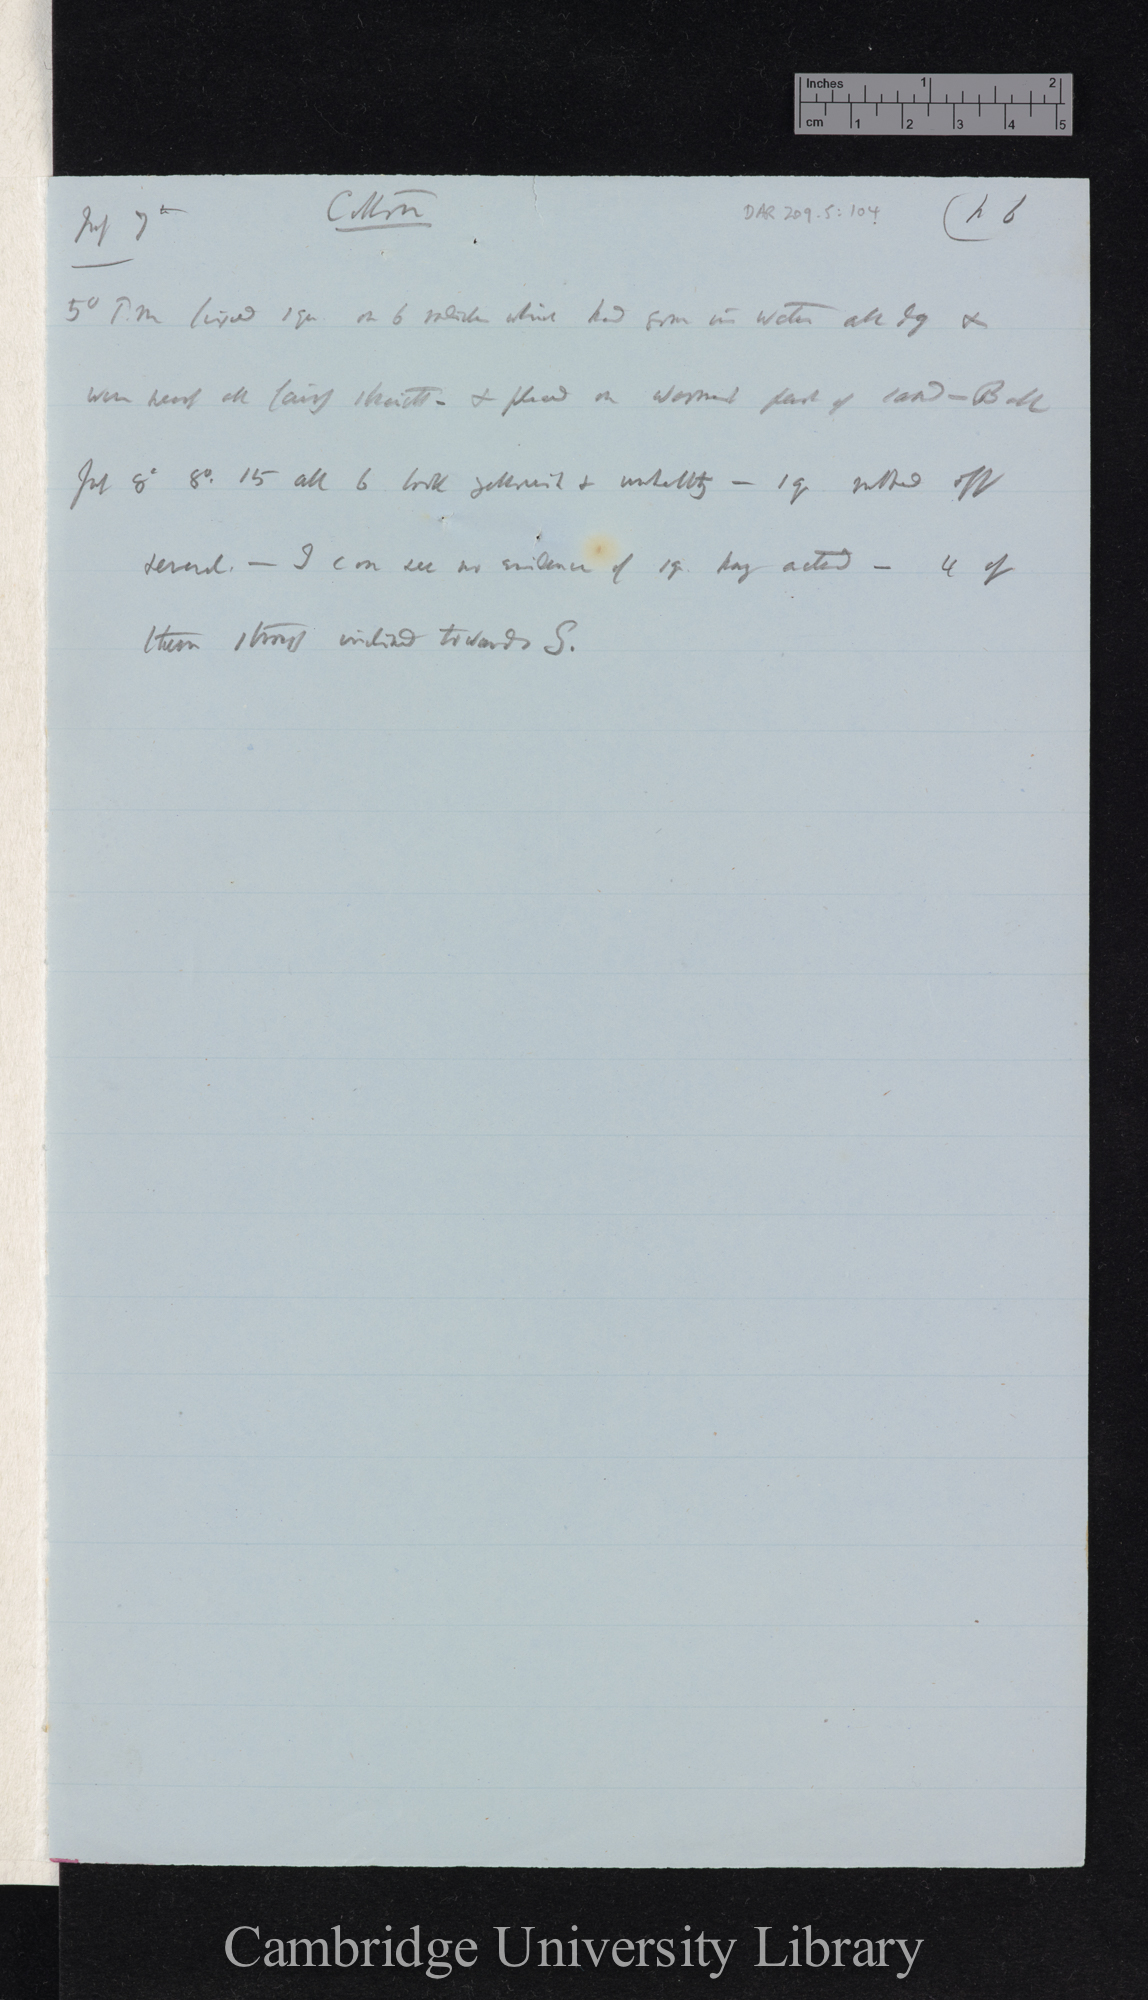 Inches 1 2
cm 1 2 3 4 5
July 7th Cotton DAR 209.5: 104 (p 6
5° P.m fixed sqrs. on 6 radicles which had grown in water all dg &
were nearly all fairly straight - & placed on warmest part of sand -
July 8th 8°. 15 all 6 look yellowish & unhealthy - sq rubbed off
several. - I can see no evidence of sq. havg acted - 4 of
them strongly inclined towards S.
Cambridge University Library